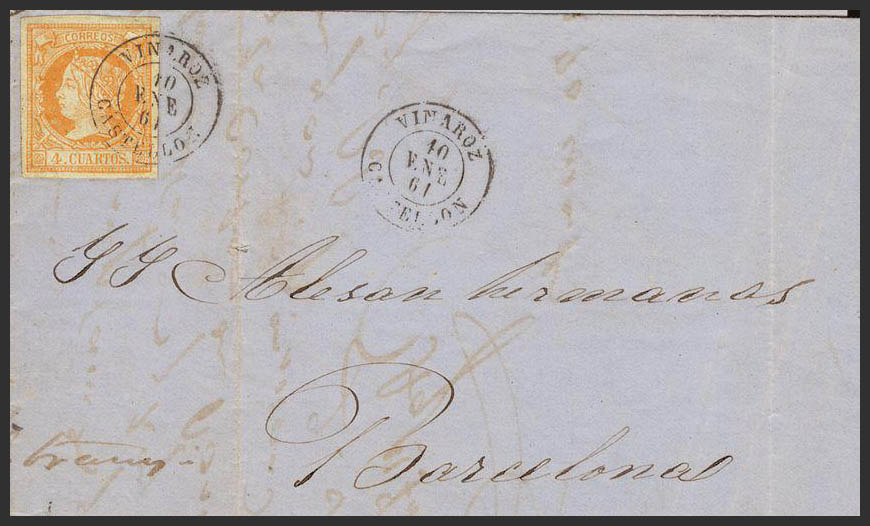 CORREOS
4. CUARTOS.
VINAROZ
10
ENE
61
CASTELLON
VINAROZ
10
ENE
61
CASTELLON
SS Alesan hermanos
Barcelona